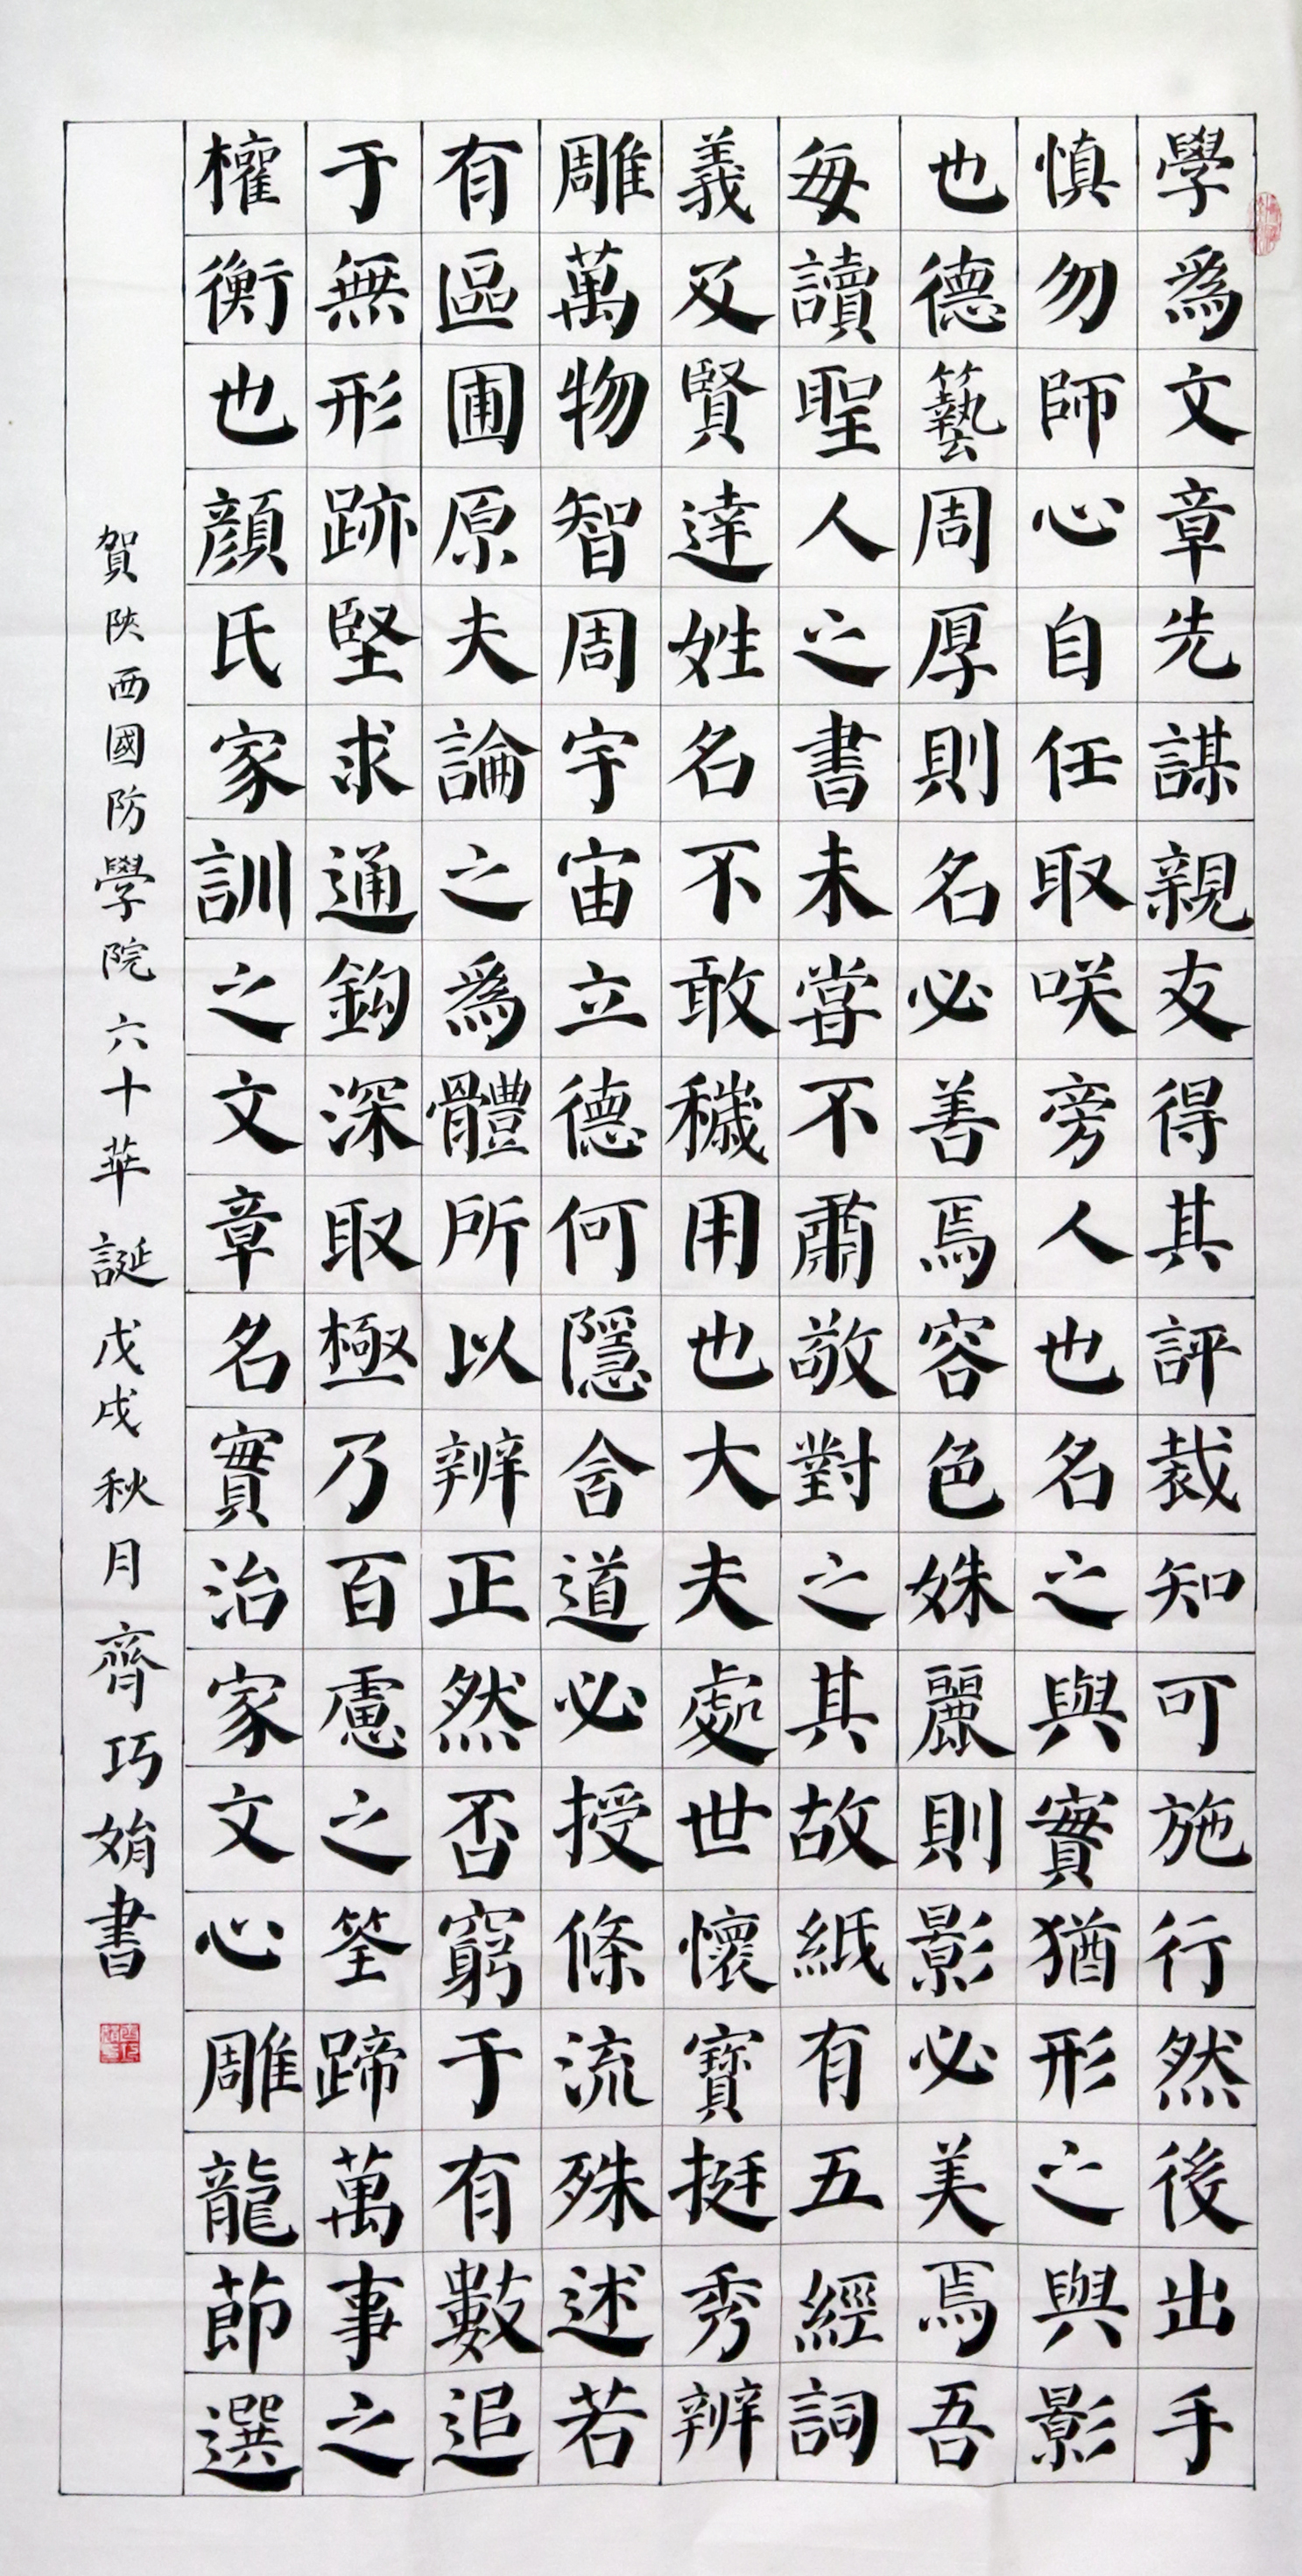 學爲文章先謀親友得其評裁知可施行然後出手
慎勿師心自任取咲旁人也名之與實猶形之與影
也德藝周厚則名必善焉容色姝麗則影必美焉吾
每讀聖人之書未嘗不肅敬對之其故紙有五經詞
義及賢達姓名不敢穢用也大夫處世懷寶挺秀辨
雕萬物智周宇宙立德何隱含道必授條流殊述若
有區囿原夫論之爲體所以辨正然否窮于有數追
于無形跡堅求通鈎深取極乃百慮之筌蹄萬事之
權衡也顏氏家訓之文章名實治家文心雕龍節選
賀陝西國防學院六十華誕戊戌秋月齊巧娟書